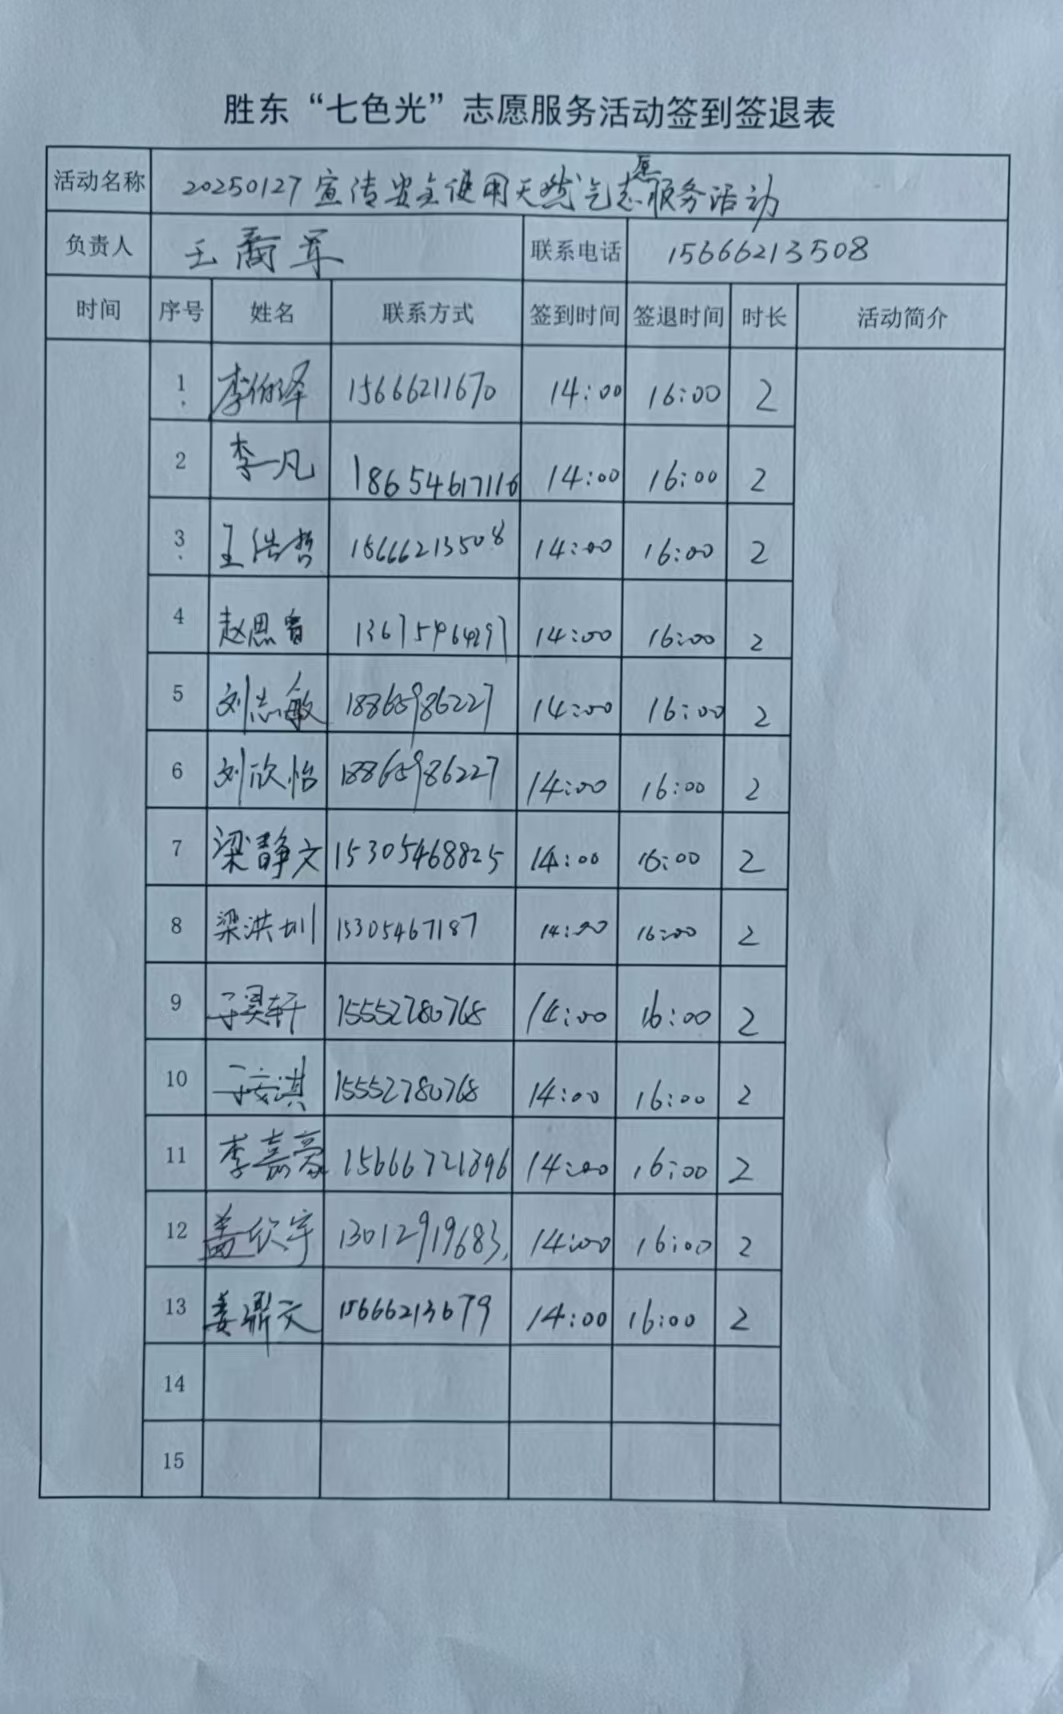 胜东“七色光”志愿服务活动签到签退表
活动名称 20250127宣传安全使用天然气志愿服务活动
负责人 王裔军 联系电话 15666213508
时间 序号 姓名 联系方式 签到时间 签退时间 时长 活动简介
1 李伯泽 15666211670 14:00 16:00 2
2 李一凡 18654617116 14:00 16:00 2
3 王浩哲 15666213508 14:00 16:00 2
4 赵思睿 14:00 16:00 2
5 刘志敏 18865986227 14:00 16:00 2
6 刘欣怡 18865986227 14:00 16:00 2
7 梁静文 15305468825 14:00 16:00 2
8 梁洪圳 15305467187 14:00 16:00 2
9 于昊轩 15552780768 14:00 16:00 2
10 于安淇 15552780768 14:00 16:00 2
11 李嘉豪 15666721896 14:00 16:00 2
12 盖欣宇 13012919683 14:00 16:00 2
13 姜鼎文 15666213679 14:00 16:00 2
14
15